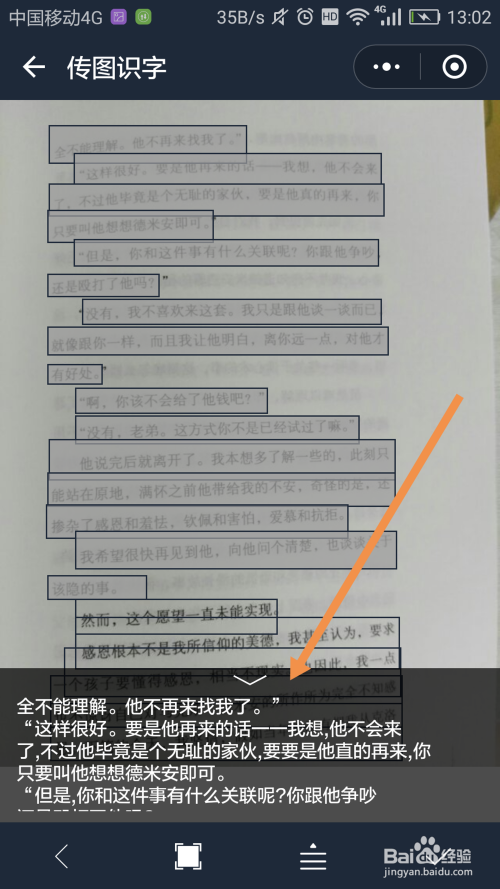 中国移动4G 35B/s HD 4G 13:02
传图识字
全不能理解。他不再来找我了。”
“这样很好。要是他再来的话——我想，他不会来
了，不过他毕竟是个无耻的家伙，要是他真的再来，你
只要叫他想想德米安即可。”
“但是，你和这件事有什么关联呢？你跟他争吵，
还是殴打了他吗？”
“没有，我不喜欢来这套。我只是跟他谈一谈而已，
就像跟你一样，而且我让他明白，离你远一点，对他才
有好处。”
“啊，你该不会给了他钱吧？”
“没有，老弟。这方式你不是已经试过了嘛。”
他说完后就离开了。我本想多了解一些的，此刻只
能站在原地，满怀之前他带给我的不安，奇怪的是，还
掺杂了感恩和羞怯，钦佩和害怕，爱慕和抗拒。
我希望很快再见到他，向他问个清楚，也谈谈
该隐的事。
然而，这个愿望一直未能实现。
感恩根本不是我所信仰的美德，我甚至认为，要求
一个孩子要懂得感恩，相当不现实。因此，我一点
全不能理解。他不再来找我了。”
“这样很好。要是他再来的话——我想,他不会来
了,不过他毕竟是个无耻的家伙,要要是他直的再来,你
只要叫他想想德米安即可。
“但是,你和这件事有什么关联呢?你跟他争吵
Baidu经验
jingyan.baidu.com